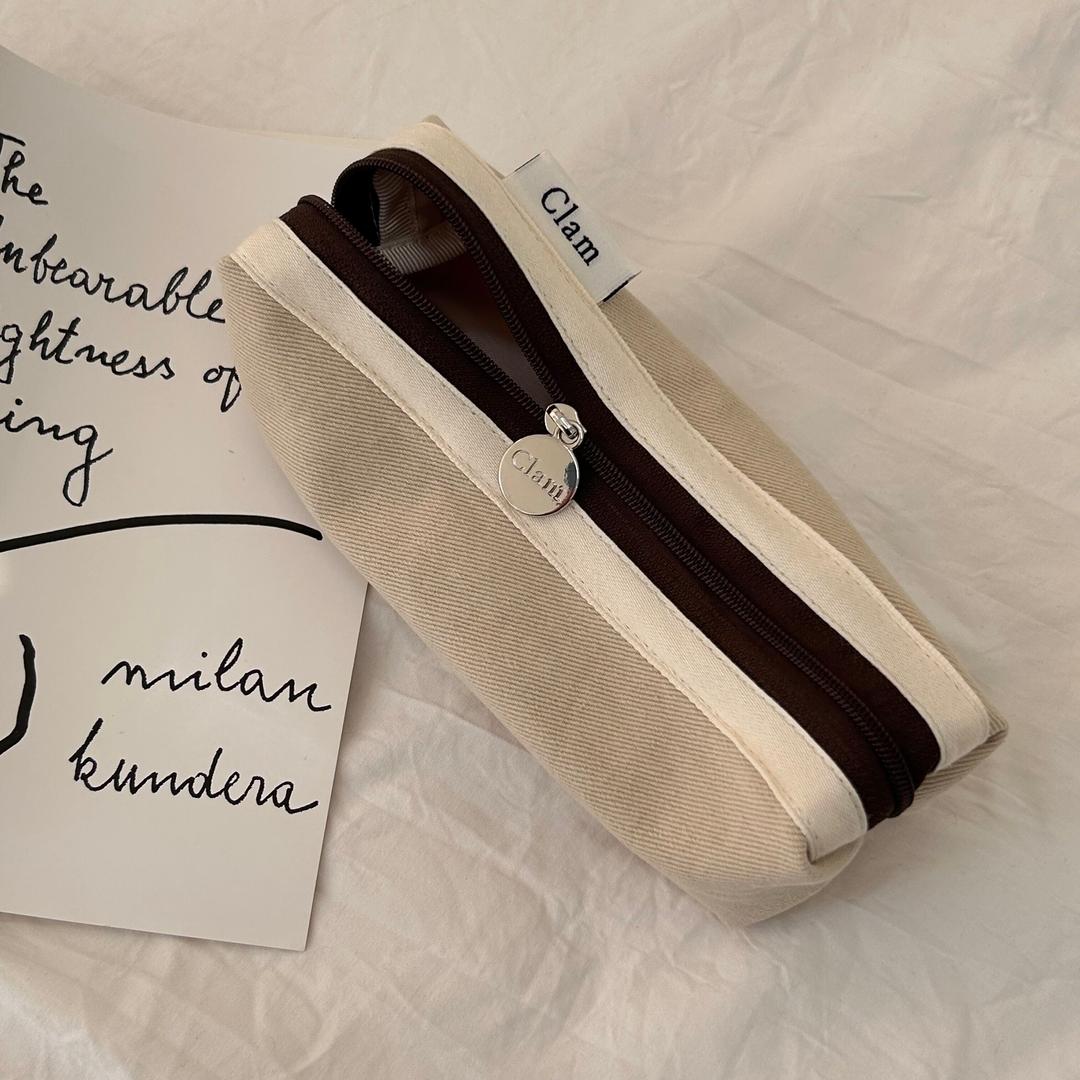 The
Unbearable
ghtness of
ing
milan
kundera
Clam
Clam